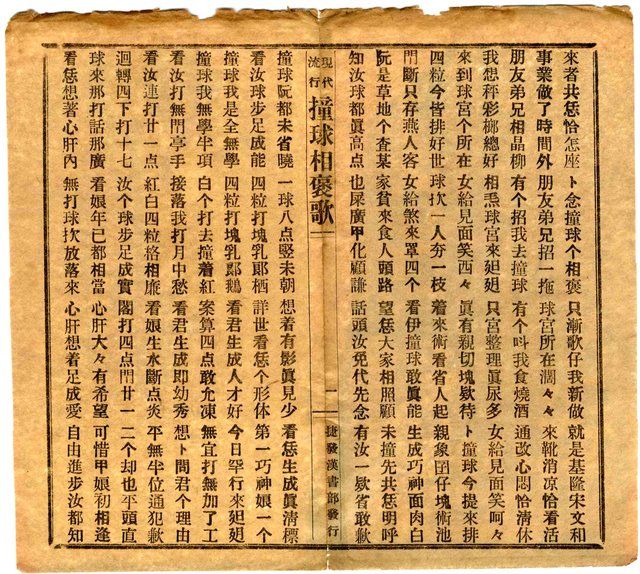 來者共恁恰怎座 卜念撞球个相褒 只漸歌仔我新做 就是基隆宋文和
事業做了時間外 朋友弟兄招一拖 球宮所在濶々々 來靴消凉恰看活
朋友弟兄相晶柳 有个招我去撞球 有个叫我食燒酒 通改心悶恰清休
我想秤彩榔總好 相𤆬球宮來廻廻 只宮整理眞尿多 女給見面笑呵々
來到球宮个所在 女給見面笑西々 眞有親切塊欵待 卜撞球今提來排
四粒今皆排好世 球㧒一人夯一枝 着來術看省人起 親象囝仔塊術池
門斷只存燕人客 女給煞來罩四个 看伊撞球敢眞能 生成巧神面肉白
阮是草地个查某 家貧來食人頭路 望恁大家相照顧 未撞先共恁明呼
知汝球都眞高点 也屎廣甲化顧謙 話頭汝免代先念 有汝一欵省敢歉
現代流行 撞球相褒歌 一 捷發漢書部發行
撞球阮都未省曉 一球八点竪未朝 想着有影眞見少 看恁生成眞清標
看汝球步足成能 四粒打塊乳郮栖 詳世看恁个形体 第一巧神娘一个
撞球我是全無學 四粒打塊乳郮鵝 看君生成人才好 今日罕行來廻廻
撞球我無學半項 白个打去撞着紅 案算四点敢允凍 無宜打無加了工
看汝打無閂亭手 接落我打月中愁 看君生成即幼秀 想卜問君个理由
看汝連打廿一点 紅白四粒格相廉 看娘生水斷点炎 平無半位通犯歉
迴轉四下打十七 汝个球步足成實 閣打四点閂廿一 二个却也平頭直
球來那打話那廣 看娘年已都相當 心肝大々有希望 可惜甲娘初相逢
看恁想著心肝內 無打球㧒放落來 心肝想着足成愛 自由進步汝都知